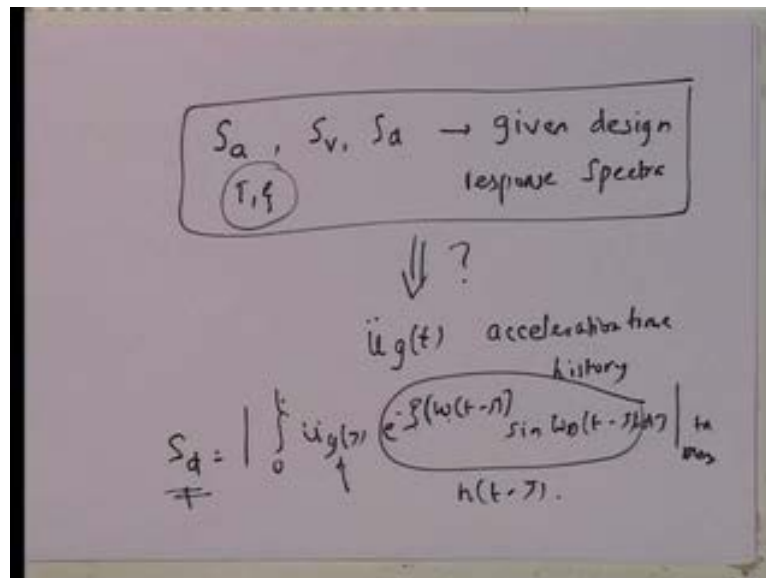 Sa , Sv, Sd → given design
T,ξ response Spectra
⇓ ?
üg(t) acceleration time
history
Sd = | ∫₀ᵗ üg(τ) e^-ξ(ω(t-τ) sin ωD(t-τ)dτ | max
h(t-τ).